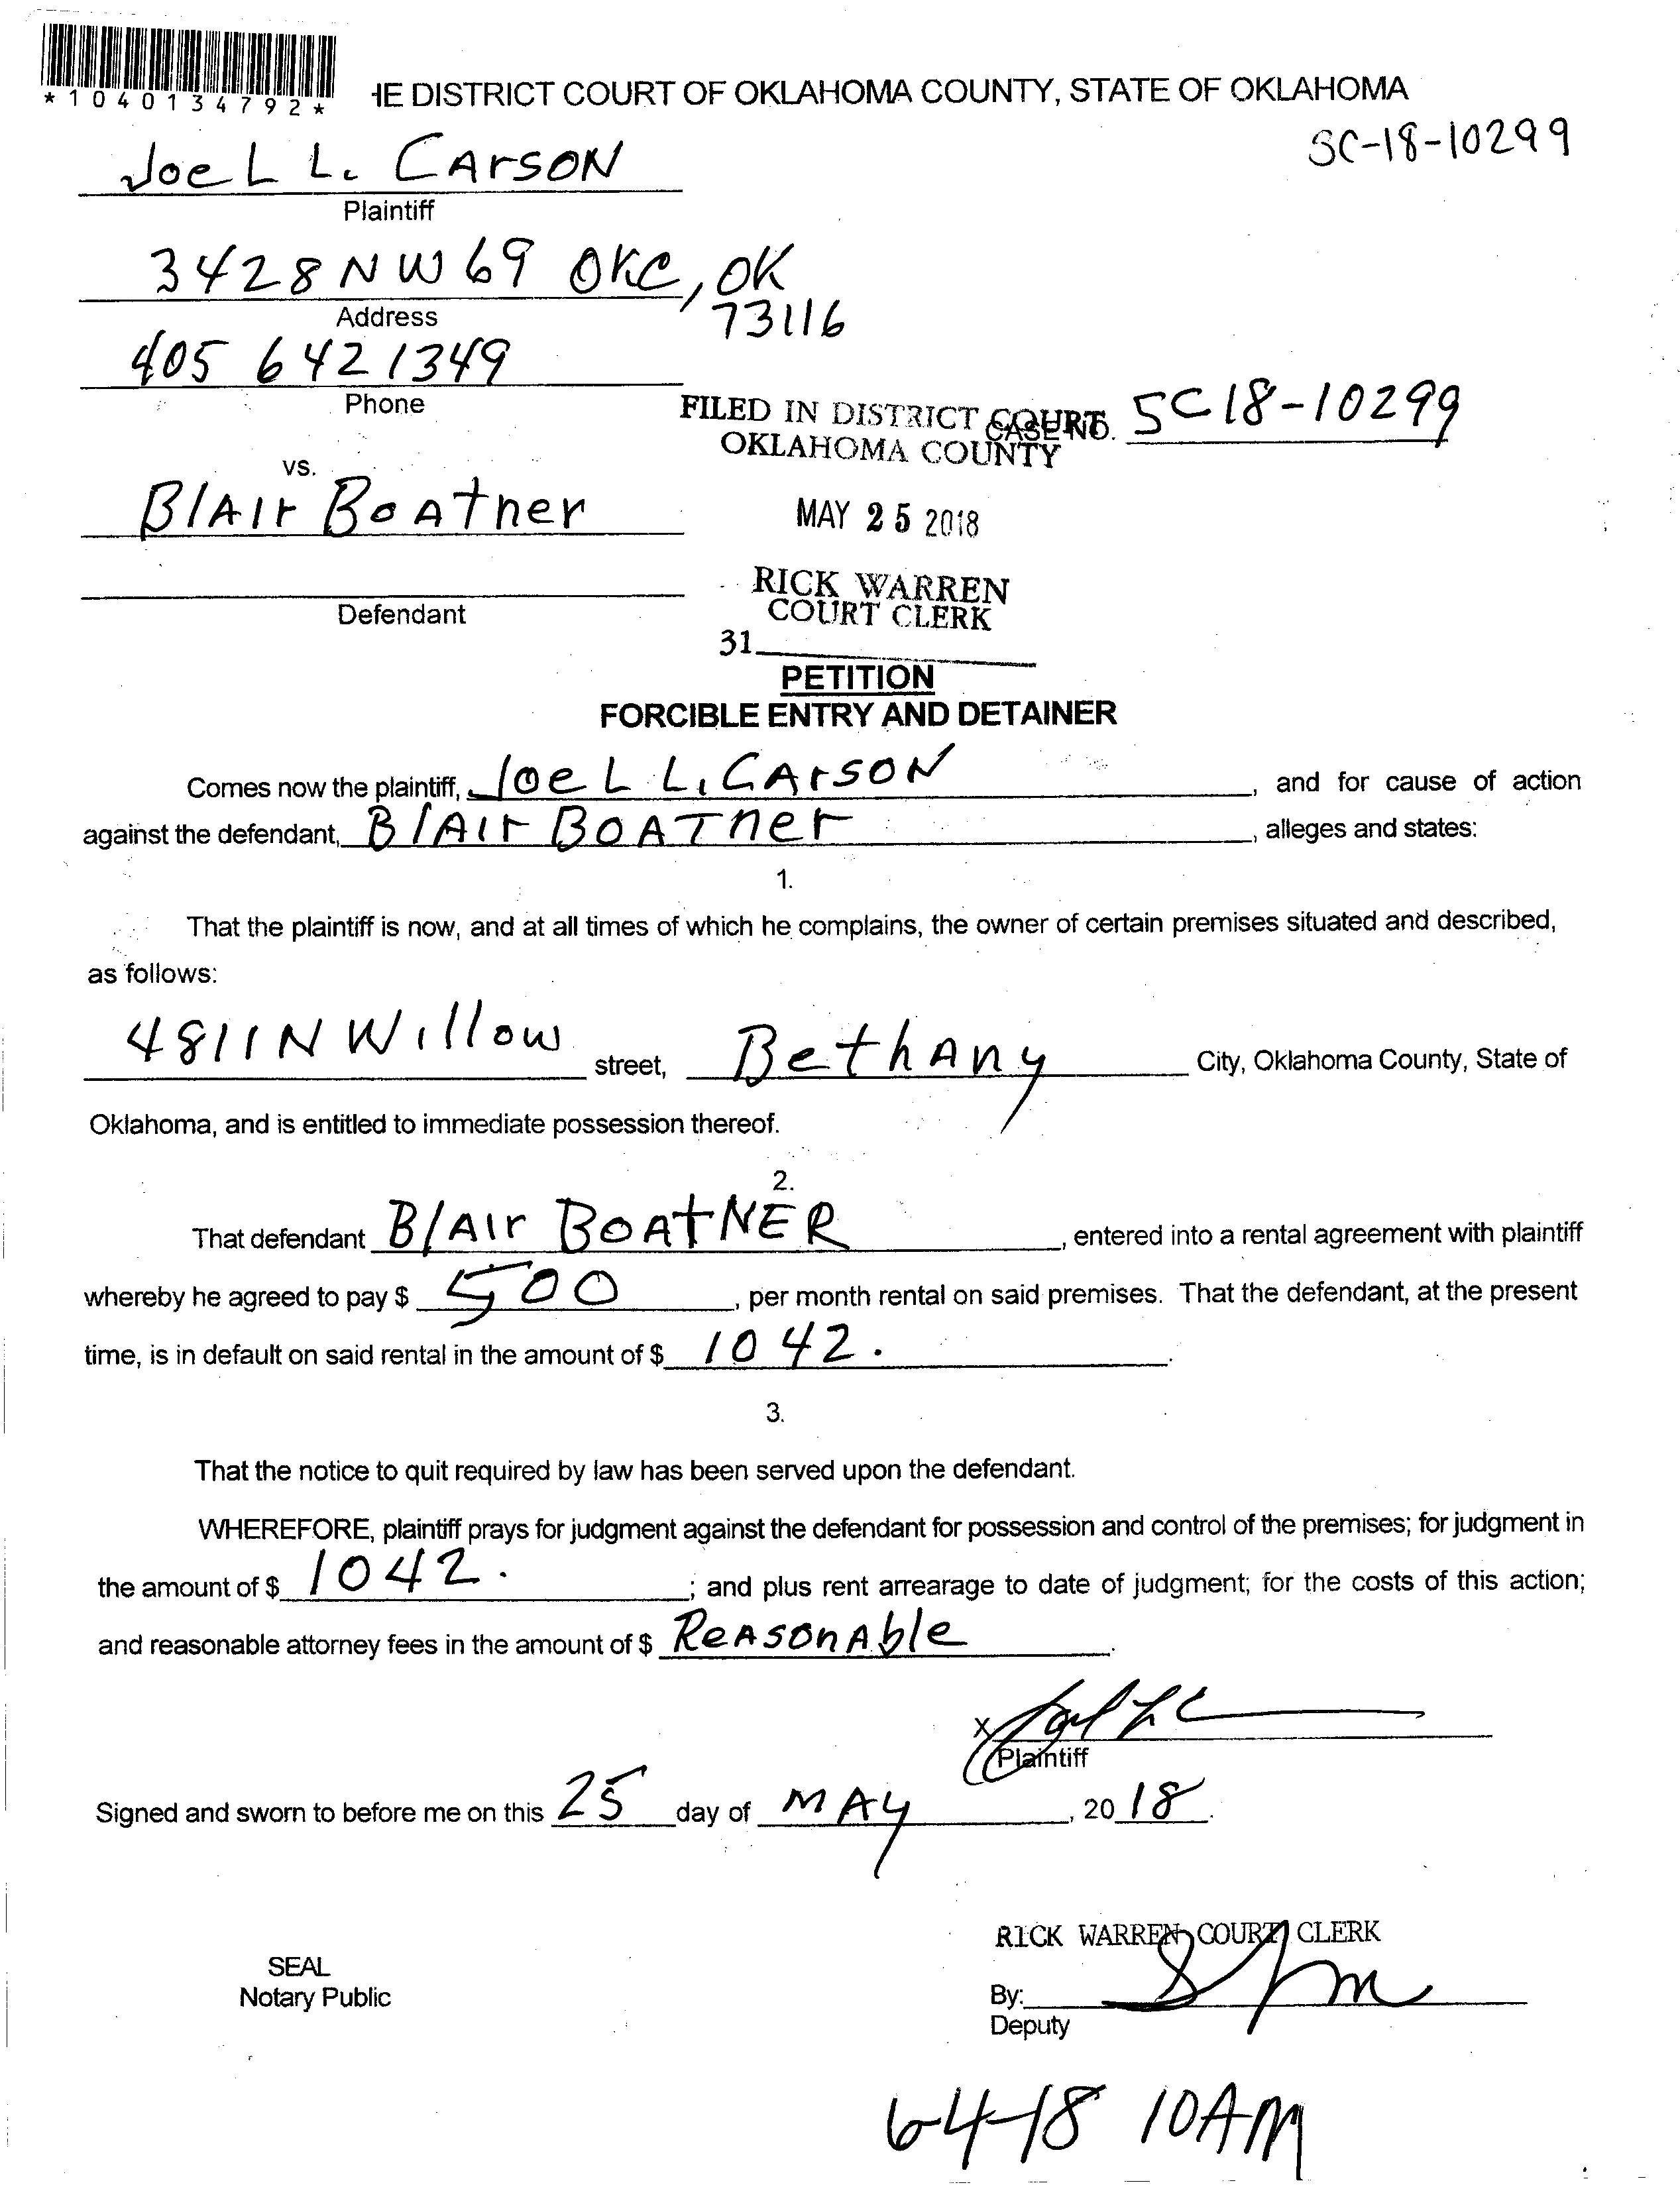 *1040134792*
IE DISTRICT COURT OF OKLAHOMA COUNTY, STATE OF OKLAHOMA
SC-18-10299
Joel L. Carson
Plaintiff
3428 NW 69 OKC, OK
73116
Address
405 642 1349
Phone
FILED IN DISTRICT COURT
OKLAHOMA COUNTY
CASE NO. SC18-10299
vs.
Blair Boatner
MAY 25 2018
RICK WARREN
COURT CLERK
Defendant
31
PETITION
FORCIBLE ENTRY AND DETAINER
Comes now the plaintiff, Joel L. Carson, and for cause of action
against the defendant, Blair Boatner, alleges and states:
1.
That the plaintiff is now, and at all times of which he complains, the owner of certain premises situated and described,
as follows:
4811 N Willow street, Bethany City, Oklahoma County, State of
Oklahoma, and is entitled to immediate possession thereof.
2.
That defendant Blair BoatNER, entered into a rental agreement with plaintiff
whereby he agreed to pay $ 500, per month rental on said premises. That the defendant, at the present
time, is in default on said rental in the amount of $ 1042.
3.
That the notice to quit required by law has been served upon the defendant.
WHEREFORE, plaintiff prays for judgment against the defendant for possession and control of the premises; for judgment in
the amount of $ 1042. ; and plus rent arrearage to date of judgment; for the costs of this action;
and reasonable attorney fees in the amount of $ Reasonable.
X
Plaintiff
Signed and sworn to before me on this 25 day of MAy, 2018.
RICK WARREN COURT CLERK
SEAL
Notary Public
By:
Deputy
6-4-18 10AM